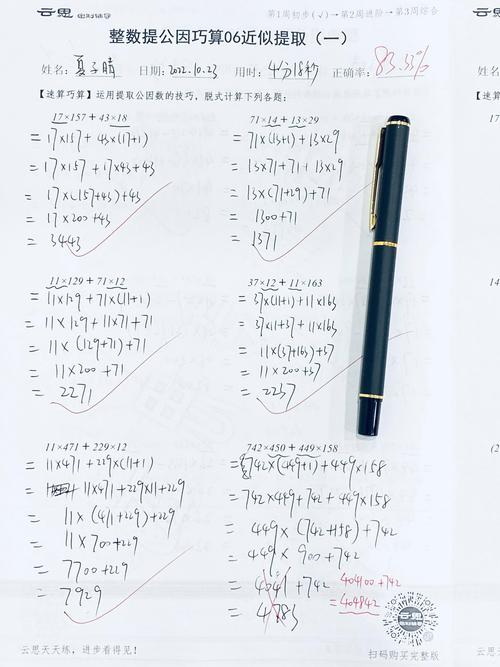 云思 第1周初步(✓)→第2周进阶→第3周综合
整数提公因巧算06近似提取（一）
姓名: 夏子晴 日期: 2022.10.23 用时: 4分18秒 正确率: 83.33%
【速算巧算】运用提取公因数的技巧，脱式计算下列各题：
17×157 + 43×18
= 17×157 + 43×(17+1)
= 17×157 + 17×43+43
= 17×(157+43)+43
= 17×200+43
= 3443
71×14 + 13×29
= 71×(13+1) + 13×29
= 13×71+71 + 13×29
= 13×(71+29)+71
= 1300+71
= 1371
11×129 + 71×12
= 11×129 + 71×(11+1)
= 11×129 + 11×71+71
= 11×(129+71)+71
= 11×200+71
= 2271
37×12 + 11×163
= 37×(11+1)+11×163
= 37×11+37+11×163
= 11×(37+163)+37
= 11×200+37
= 2237
11×471 + 229×12
= 11×471 + 229×(11+1)
= 11×471+229×11+229
= 11×(471+229)+229
= 11×700+229
= 7700+229
= 7929
742×450 + 449×158
= 742×(449+1)+449×158
= 742×449+742+449×158
= 449×(742+158)+742
= 449×900+742
= 4041+742 404100+742
= 4783 =404842
云思
云思天天练，进步看得见！ 扫码购买完整版
【速
17
1
(2